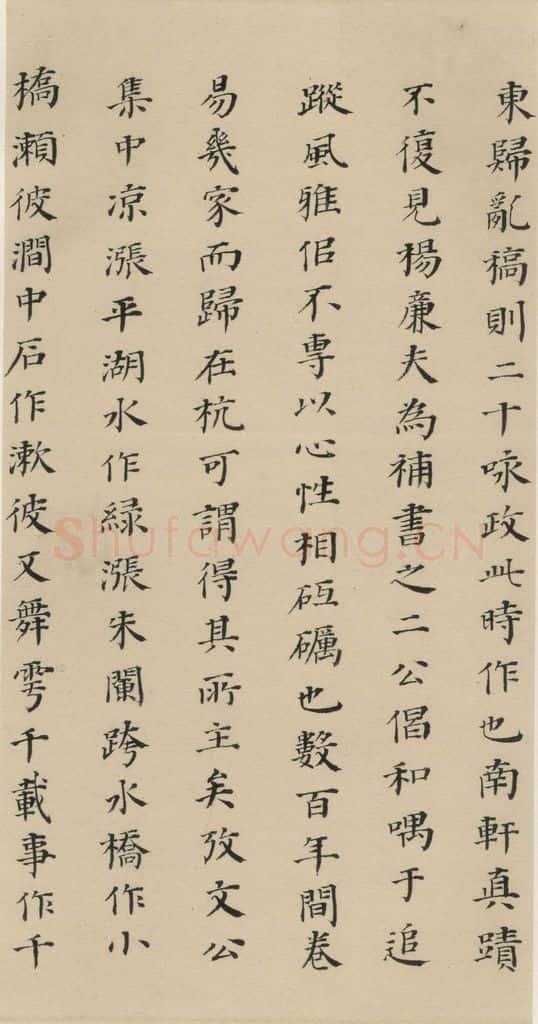 東歸亂稿則二十咏政此時作也南軒真蹟
不復見楊廉夫為補書之二公倡和喁于追
蹤風雅但不専以心性相砥礪也數百年間卷
易幾家而歸在杭可謂得其所主矣攷文公
集中凉漲平湖水作緑漲朱闌跨水橋作小
橋瀨彼澗中石作漱彼又舞雩千載事作千
Shufawang.CN